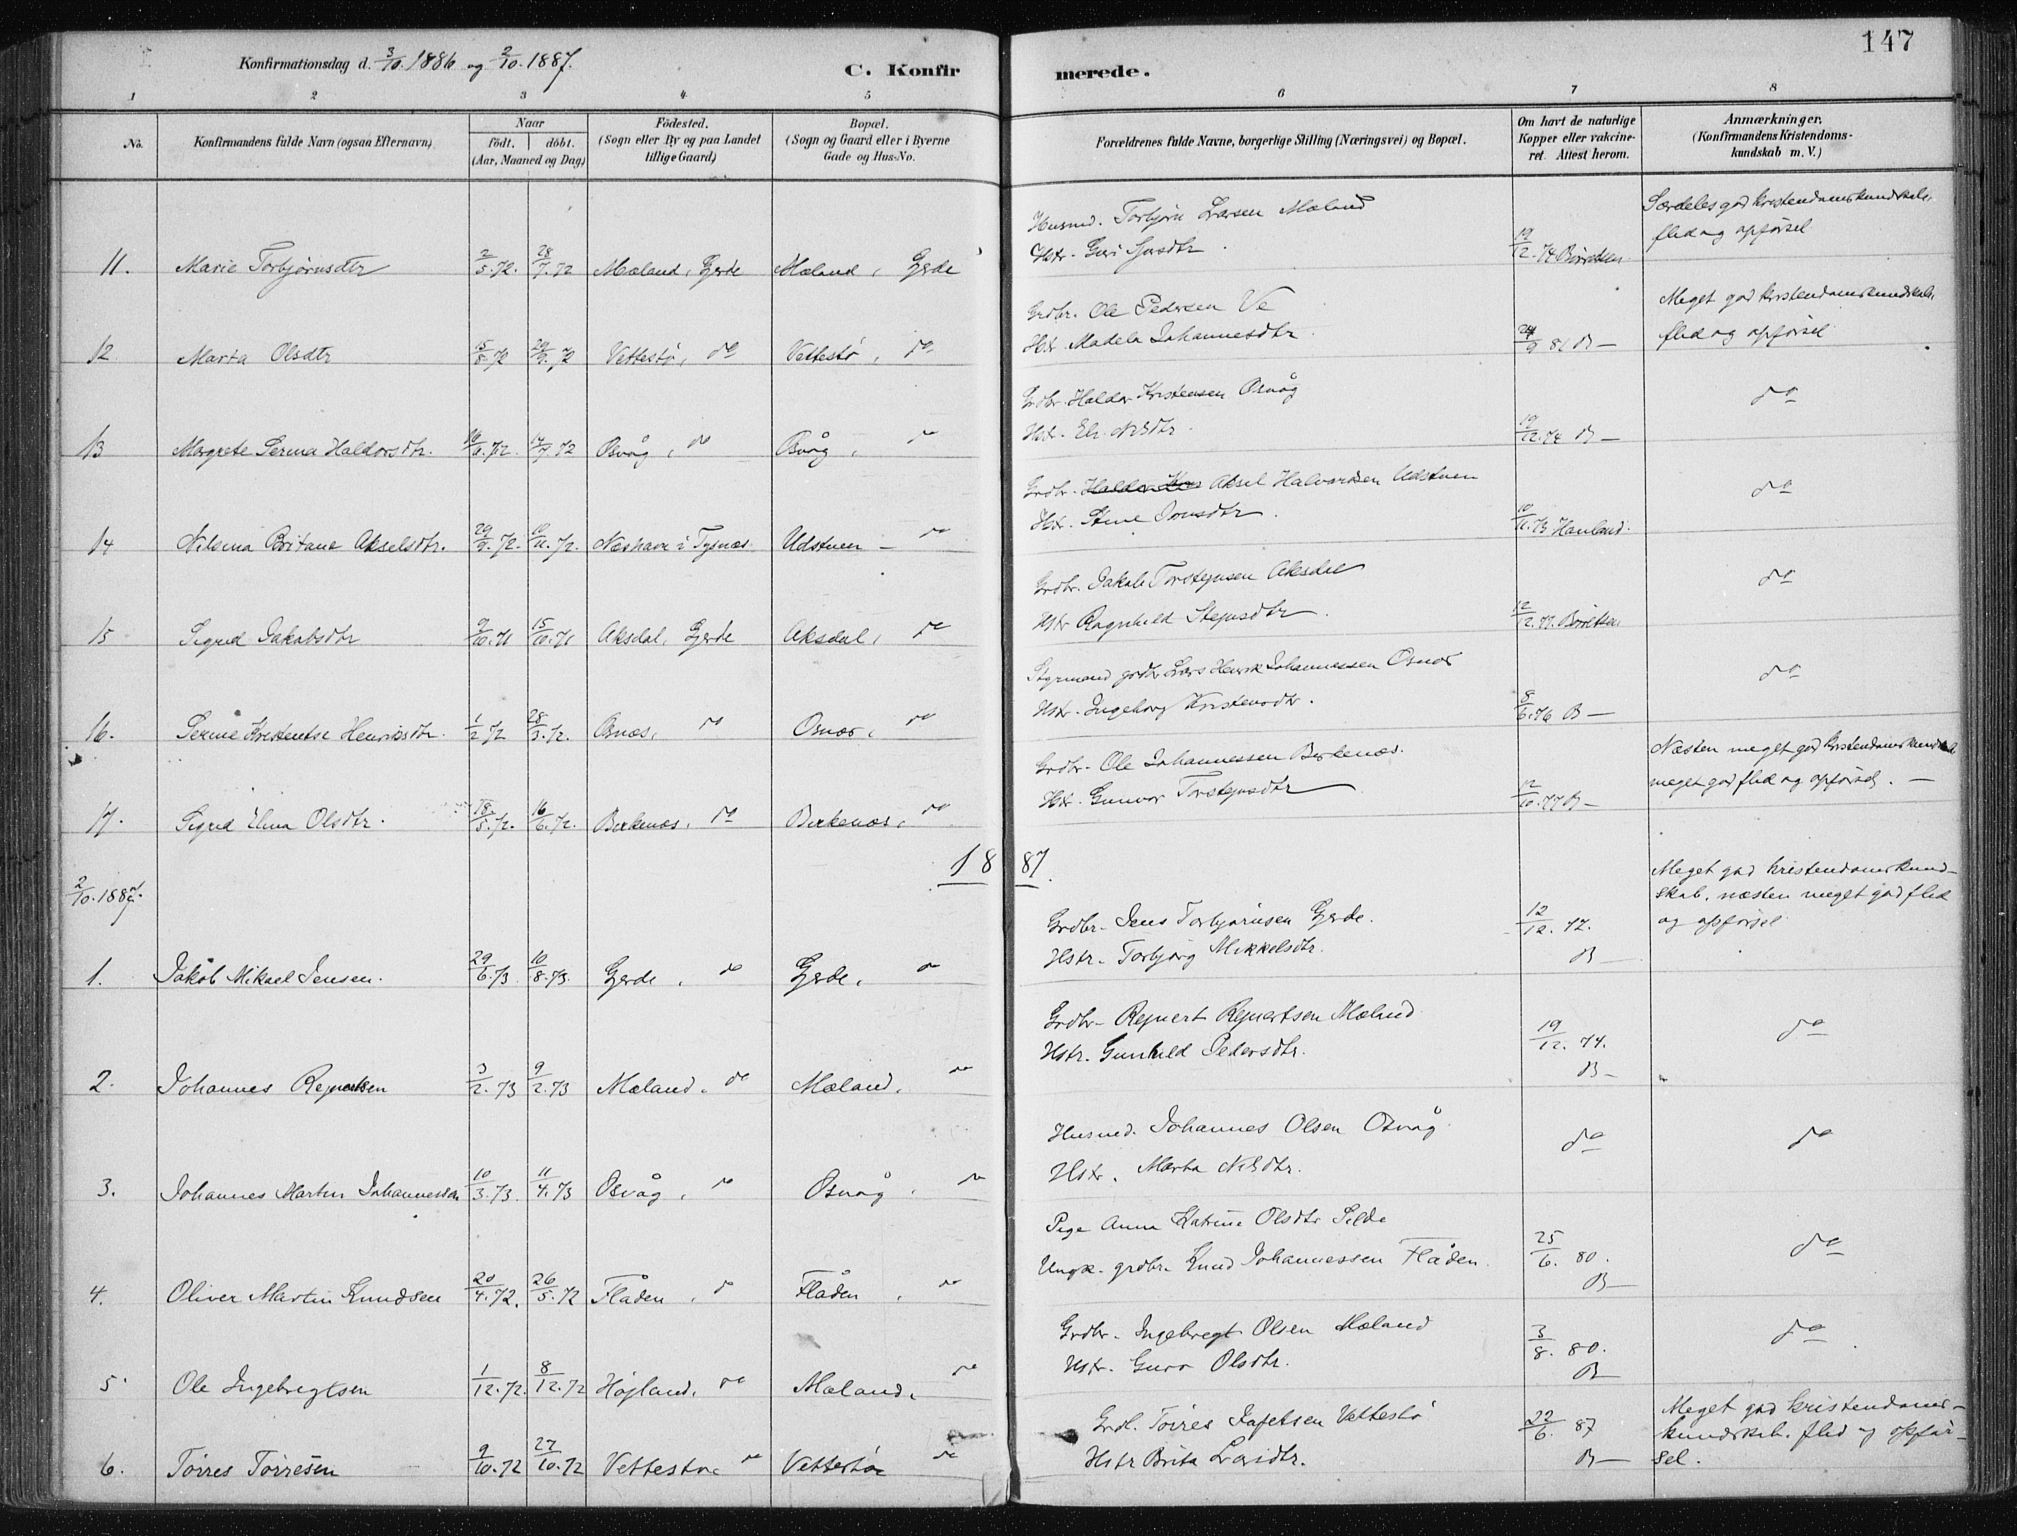 147
Konfirmationsdag d. 3/10. 1886 og 2/10. 1887.
C. Konfir merede.
1 2 3 4 5 6 7 8
No.
Konfirmandens fulde Navn (ogsaa Efternavn)
Naar
födt. döbt.
(Aar, Maaned og Dag)
Födested.
(Sogn eller By og paa Landet
tillige Gaard)
Bopæl.
(Sogn og Gaard eller i Byerne
Gade og Hus-No.
Forældrenes fulde Navne, borgerlige Stilling (Næringsvei) og Bopæl.
Om havt de naturlige
Kopper eller vakcine-
ret. Attest herom.
Anmærkninger.
(Konfirmandens Kristendoms-
kundskab m. V.)
Husmd. Torbjørn Larsen Mæland
Særdeles god kristendomskundskab,
flid og opførsel
11. Marie Torbjørnsdtr 2/5.72. 28/7.72 Mæland, Gjerde Mæland, Gjerde Hstr. Guri 19/12.74 Børretsen
Grdbr. Ole Pedersen Ve
Meget god kristendomskundskab,
flid og opførsel
12 Marta Olsdtr 15/8.72 29/9.72 Vettestø, do Vettestø, do Hstr. Madela Johannesdtr 24/9 81 B —
Grdbr. Haldor Kristensen Osvåg do
13 Margrete Serina Haldorsdtr. 72. 14/7.72 Osvåg, do Osvåg, do Hstr. Eli Nilsdtr. 19/12.74 B —
Grdbr. Aksel Halvorsen Udstuen do
14 Nilsina Britane Akselsdtr. 29/9.72. 10/11.72. Næshavn i Tysnæs. Udstuen — do Hstr. Stine 73 Hauland.
Grdbr. Jakob Torstejnsen Aksdal do
15 Sigrid Jakobsdtr 9/10.71 15/10.71 Aksdal, Gjerde Aksdal, do Hstr. Ragnhild Stejnsdtr. 12/12.77. Børretsen
Styrmand grdbr. Lars Henrik Johannessen Osnæs do
16. Serine Kristense Henriksdtr. 1/2 72 28/3.72. Osnæs, do Osnæs, do Hstr. Ingeborg Kristensdtr. 8/6.76 B —
Grdbr. Ole Johannessen Birkenæs.
Næsten meget god kristendomskundskab
meget god flid og opførsel. —
17. Sigrid Elina Olsdtr. 18/5.72. 16/6.72. Birkenæs, do Birkenæs, do Hstr. Gunvor Torstejnsdtr 12/10.77 B —
1887.
2/10. 1887.
Meget god kristendomskund-
skab, næsten meget god flid
og opførsel
Grdbr. Jens Torbjørnsen Gjerde. 12/12. 77.
Hstr. Torbjørg Mikkelsdtr. B —
1. Jakob Mikael Jensen. 29/6.73 10/8.73. Gjerde, do Gjerde, do
Grdbr. Rejnert Rejnertsen Mæland 19/12. 74. do
Hstr. Gunhild Pedersdtr. B —
2. Johannes Rejnertsen 3/2.73 9/2.73 Mæland, do Mæland, do
Husmd. Johannes Olsen Osvåg do do
Hstr. Marta Nilsdtr.
3. Johannes Martin Johannessen 10/3.73. 11/4.73 Osvåg, do Osvåg, do
Pige Anna Katrine Olsdtr Silde 25/6. 80. do
Ungk. grdbr. Knud Johannessen Flåden. B —
4. Oliver Martin Knudsen 20/4.72. 26/5.72 Flåden, do Flåden, do
Grdbr. Ingebregt Olsen Mæland 3/8. 80. do
Hstr. Guro Olsdtr. B —
5. Ole Ingebregtsen 1/12.72. 8/12.72 Højland, do Mæland, do
Grdb. Tørres Jafetsen Vettestø 22/6. 87
Meget god kristendoms-
kundskab, flid og opfør-
sel.
6. Tørres Tørresen 9/10.72 27/10.72 Vettestø, do Vettestø, do Hstr Brita Larsdtr. B —